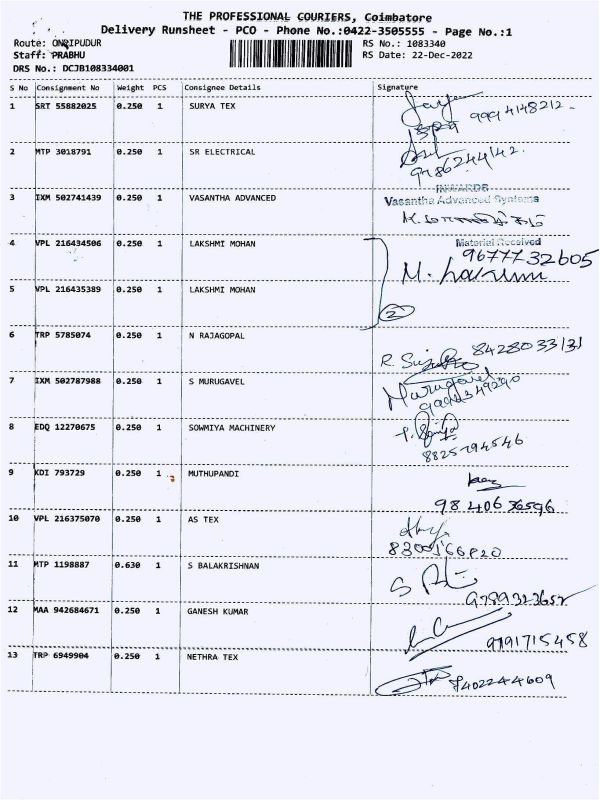 THE PROFESSIONAL COURIERS, Coimbatore
Delivery Runsheet - PCO - Phone No.:0422-3505555 - Page No.:1
Route: ONDIPUDUR
RS No.: 1083340
Staff: PRABHU
RS Date: 22-Dec-2022
DRS No.: DCJB108334001
S No Consignment No Weight PCS Consignee Details Signature
1 SRT 55882025 0.250 1 SURYA TEX 9994148212
2 MTP 3018791 0.250 1 SR ELECTRICAL
INWARDS
3 IXM 502741439 0.250 1 VASANTHA ADVANCED Vasantha Advanced Systems
4 VPL 216434506 0.250 1 LAKSHMI MOHAN Material Received
9677732605
M.
5 VPL 216435389 0.250 1 LAKSHMI MOHAN
2
6 TRP 5785074 0.250 1 N RAJAGOPAL 8428033131
R.
7 IXM 502787988 0.250 1 S MURUGAVEL Murugavel
8 EDQ 12270675 0.250 1 SOWMIYA MACHINERY
8825794546
9 KDI 793729 0.250 1 MUTHUPANDI
9840636596
10 VPL 216375070 0.250 1 AS TEX
8300166820
11 MTP 1198887 0.630 1 S BALAKRISHNAN S
9789323652
12 MAA 942684671 0.250 1 GANESH KUMAR
9791715458
13 TRP 6949904 0.250 1 NETHRA TEX
8402244609